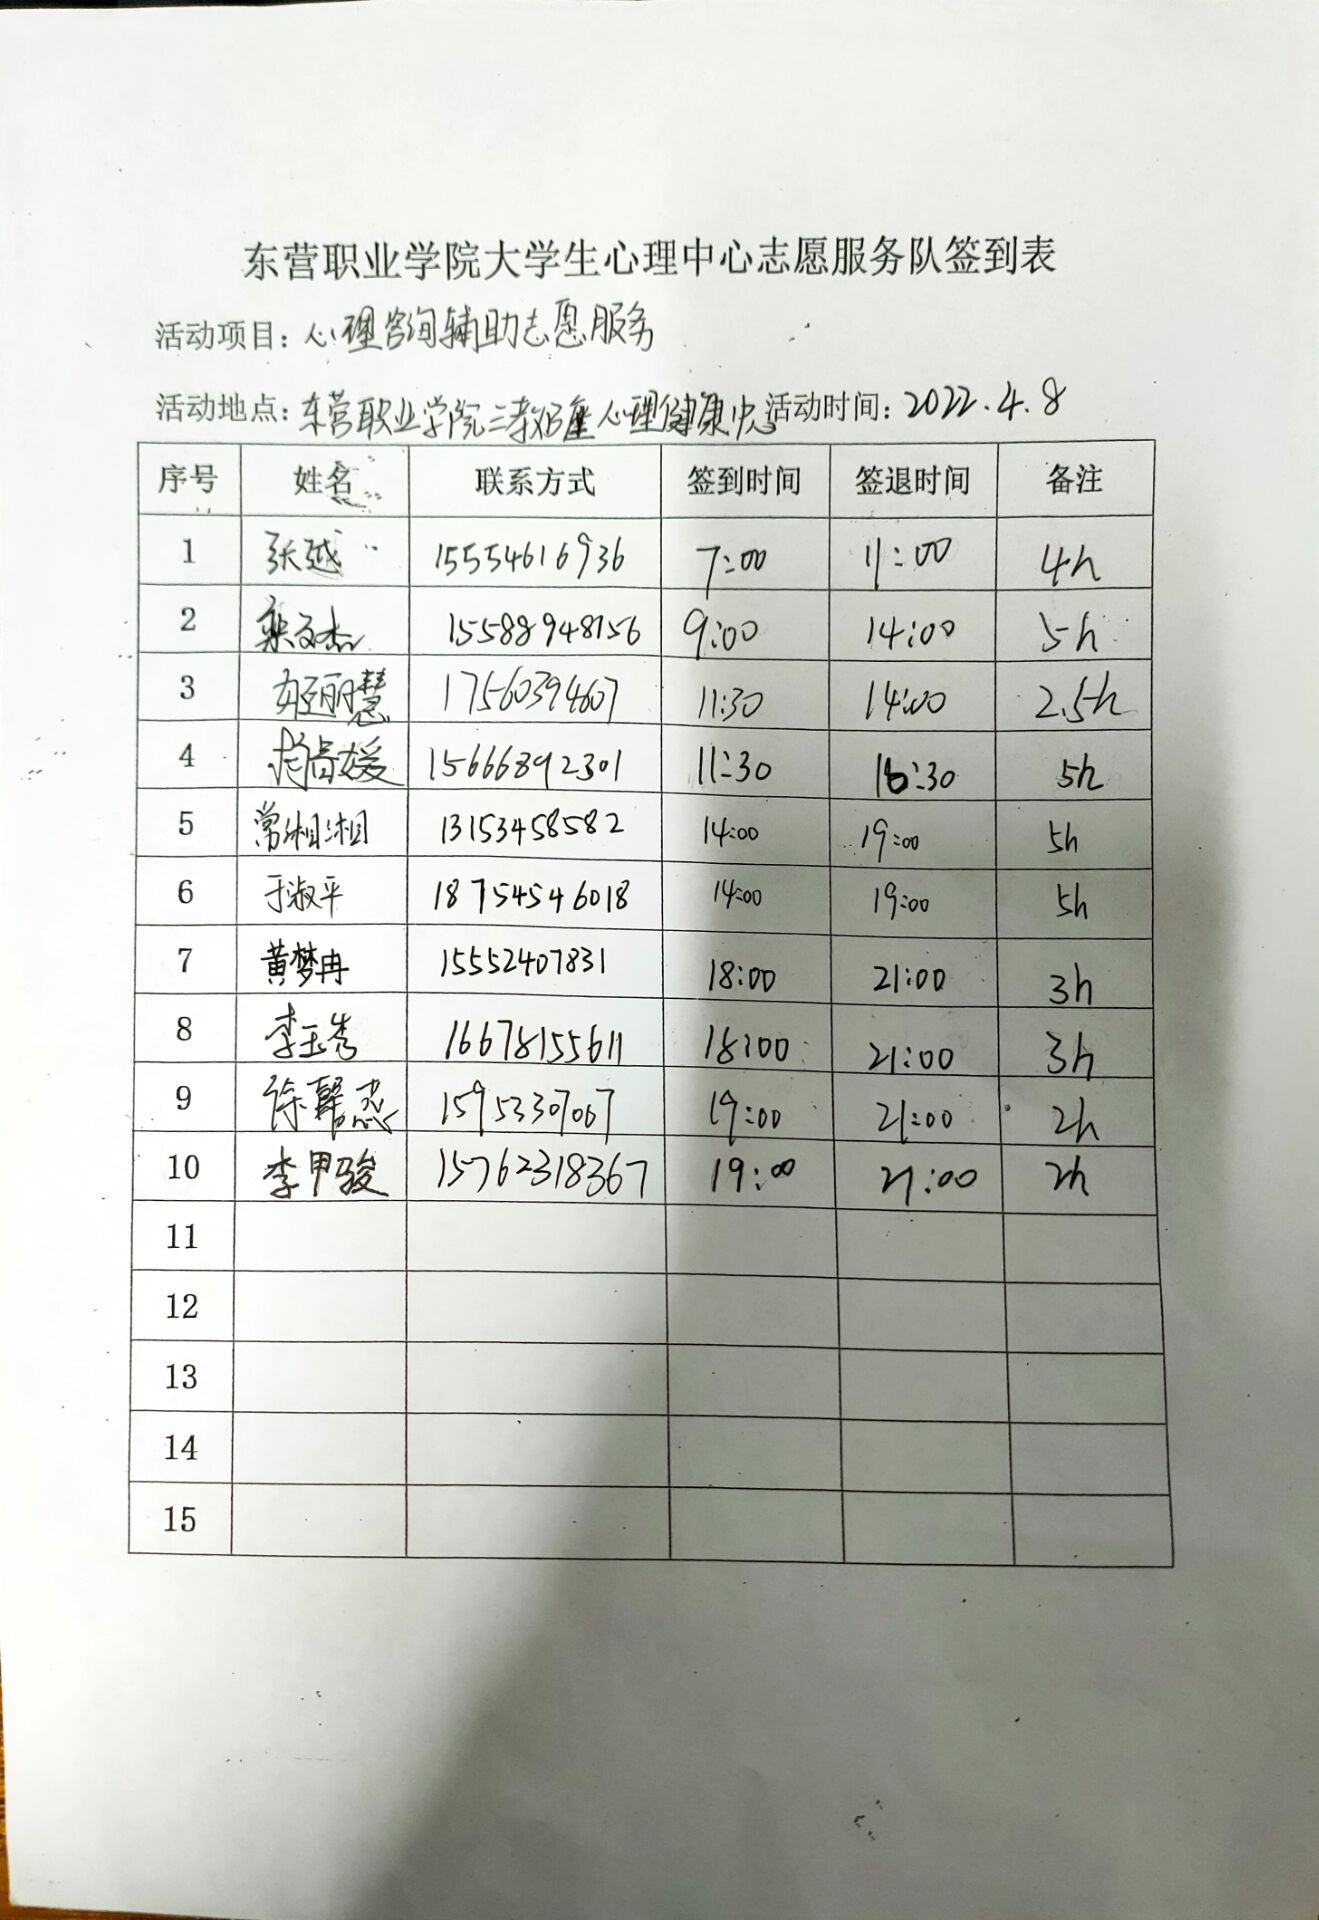 东营职业学院大学生心理中心志愿服务队签到表
活动项目：心理咨询辅助志愿服务
活动地点：东营职业学院三教 心理健康中心 活动时间：2022.4.8
序号 姓名 联系方式 签到时间 签退时间 备注
1 张越 15554616936 7:00 11:00 4h
2 15588948156 9:00 14:00 5h
3 丽慧 17560394607 11:30 14:00 2.5h
4 15666892301 11:30 16:30 5h
5 常湘湘 13153458582 14:00 19:00 5h
6 于淑平 18754546018 14:00 19:00 5h
7 黄梦冉 15552407831 18:00 21:00 3h
8 李玉秀 16678155611 18:00 21:00 3h
9 徐馨 15953307067 19:00 21:00 2h
10 李甲骏 15762318367 19:00 21:00 2h
11
12
13
14
15